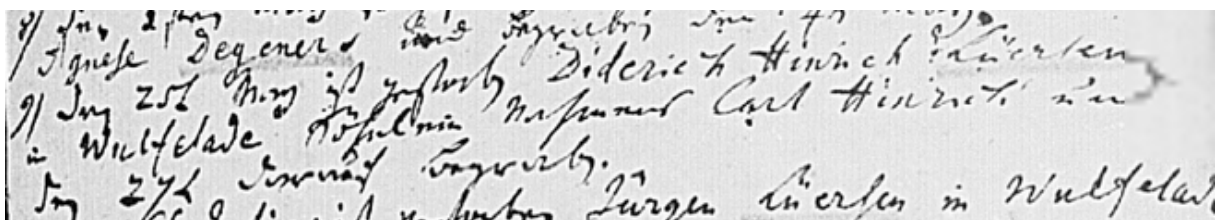 Agnese Degeners und begraben den
9) den 25t May ist gestorb. Diderich Hinrich Lüersen
in Wulfelade Söhnlein Nahmens Carl Hinrich un
den 27t darauf begrab.
Jürgen Lüersen in Wulfelade